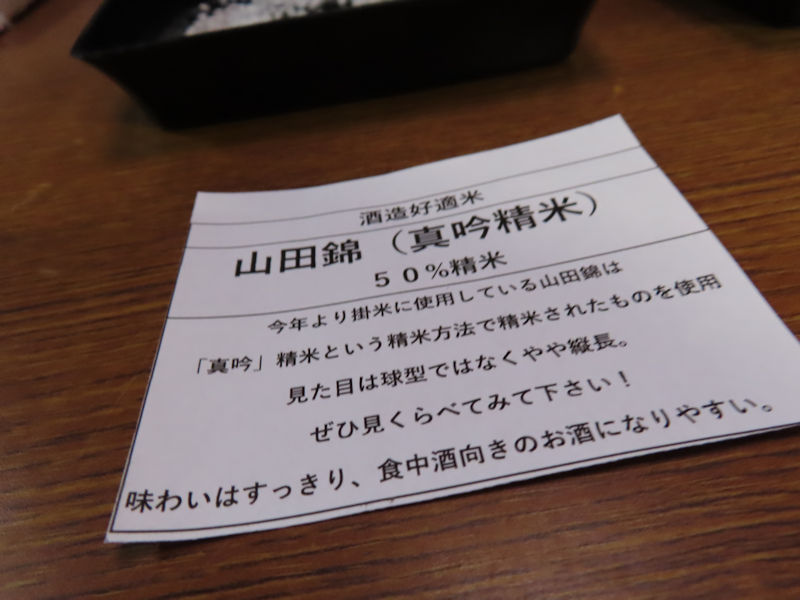 酒造好適米
山田錦（真吟精米）
５０％精米
今年より掛米に使用している山田錦は
「真吟」精米という精米方法で精米されたものを使用
見た目は球型ではなくやや縦長。
ぜひ見くらべてみて下さい！
味わいはすっきり、食中酒向きのお酒になりやすい。